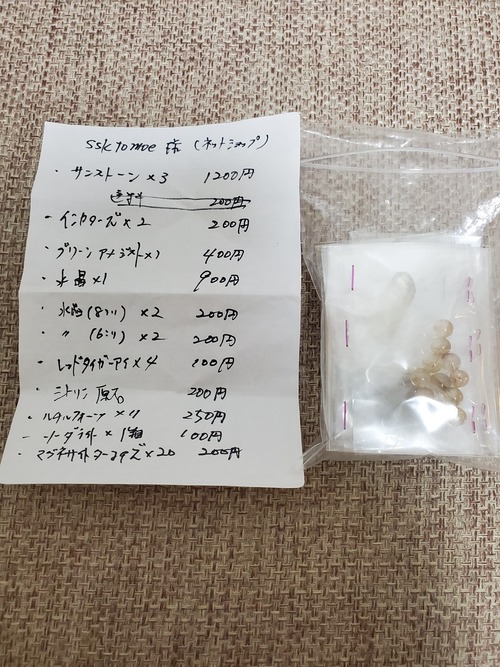 ssk tomoe 様 (ネットショップ)
・サンストーン×3 1200円
送料 200円
・インカローズ×2 200円
・グリーンアメジスト×1 400円
・水晶×1 900円
・水晶(8ミリ)×2 200円
・〃(6ミリ)×2 200円
・レッドタイガーアイ×4 100円
・シトリン原石 200円
・ルチルクォーツ×11 250円
・ソーダライト×1 100円
・マグネサイトターコイズ×20 200円